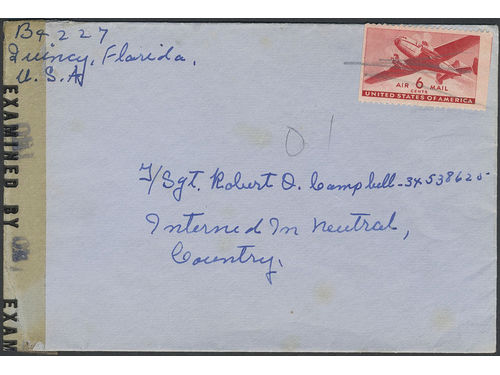 Bx 227
Quincy, Florida.
U.S.A
AIR 6 MAIL
CENTS
UNITED STATES OF AMERICA
01
T/Sgt. Robert O. Campbell-34538625-
Interned In Neutral,
Country.
EXAMINED BY
EXAM